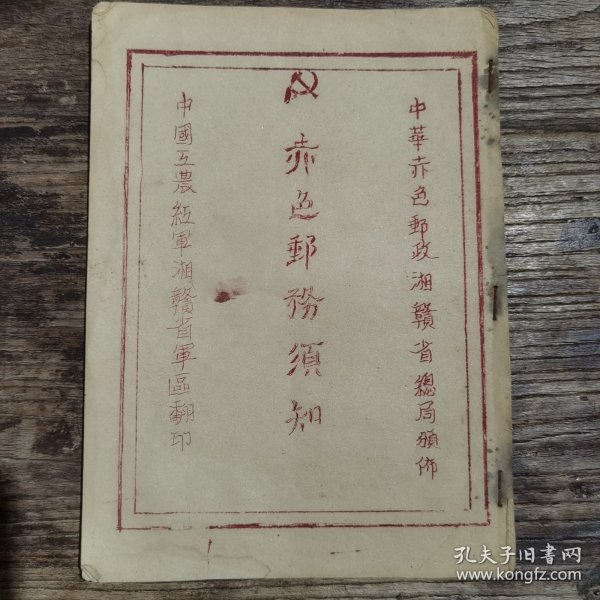 中華赤色郵政湘贛省總局頒佈
赤色郵務須知
中國工農紅軍湘贛省軍區翻印
孔夫子旧书网
www.kongfz.com